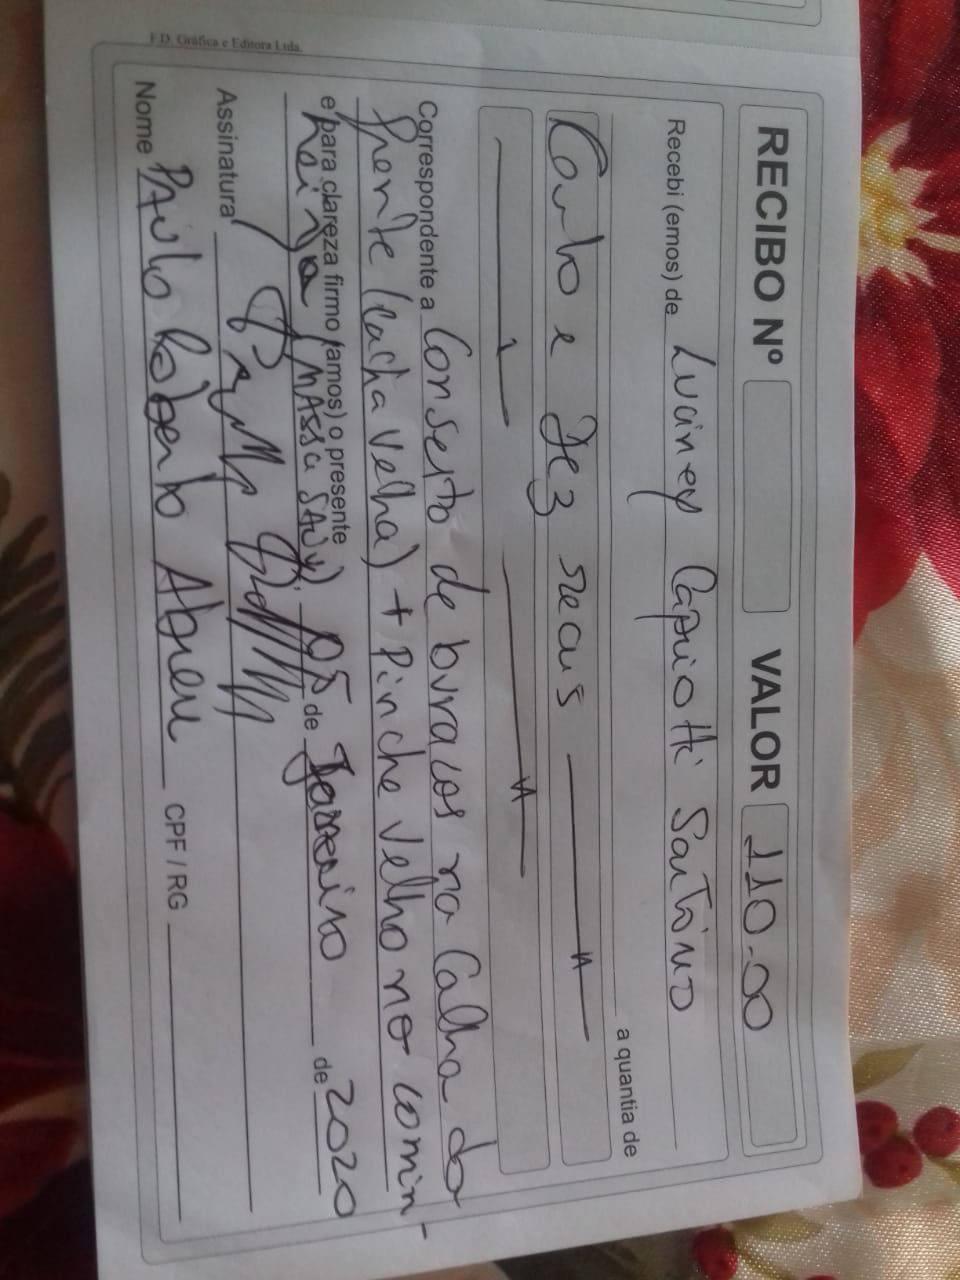 RECIBO Nº VALOR 110-00
Recebi (emos) de Luciney Capriotti Santino
a quantia de
Cento e Dez reais
Correspondente a Conserto de buracos na Calha da
frente (cacha velha) + Pinche velho no comin-
e para clareza firmo (amos) o presente
heiro (MASSA 05 de Janeiro de 2020
Assinatura
Nome PAulo Roberto Abreu CPF / RG
F.D. Gráfica e Editora Ltda.